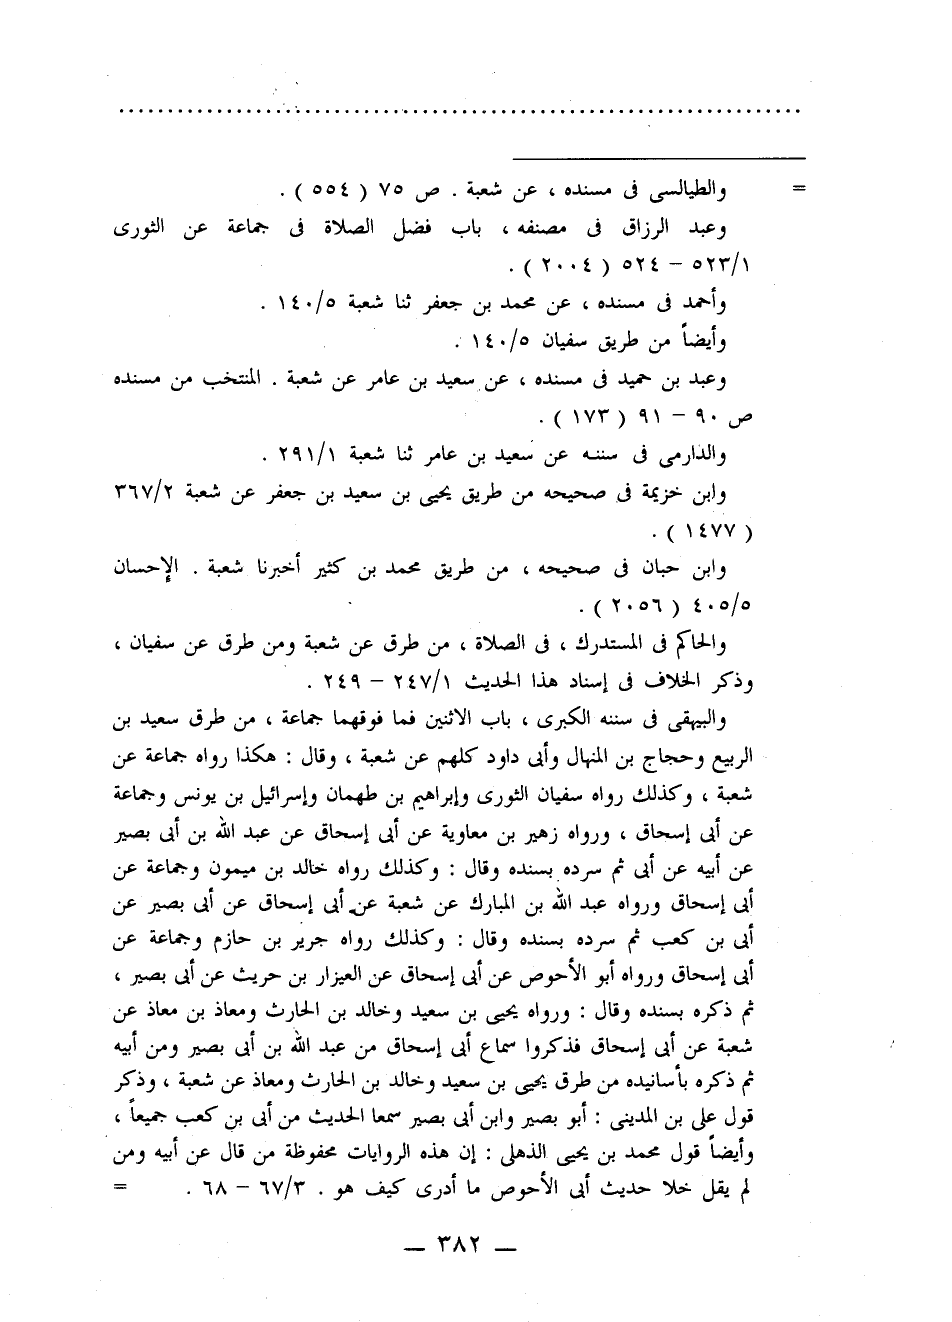 = والطيالسى فى مسنده ، عن شعبة . ص ٧٥ ( ٥٥٤ ) .
وعبد الرزاق فى مصنفه ، باب فضل الصلاة فى جماعة عن الثورى
٥٢٣/١ – ٥٢٤ ( ٢٠٠٤ ) .
وأحمد فى مسنده ، عن محمد بن جعفر ثنا شعبة ١٤٠/٥ .
وأيضاً من طريق سفيان ١٤٠/٥ .
وعبد بن حميد فى مسنده ، عن سعيد بن عامر عن شعبة . المنتخب من مسنده
ص ٩٠ – ٩١ ( ١٧٣ ) .
والدارمى فى سننه عن سعيد بن عامر ثنا شعبة ٢٩١/١ .
وابن خزيمة فى صحيحه من طريق يحيى بن سعيد بن جعفر عن شعبة ٣٦٧/٢
( ١٤٧٧ ) .
وابن حبان فى صحيحه ، من طريق محمد بن كثير أخبرنا شعبة . الإحسان
٤٠٥/٥ ( ٢٠٥٦ ) .
والحاكم فى المستدرك ، فى الصلاة ، من طرق عن شعبة ومن طرق عن سفيان ،
وذكر الخلاف فى إسناد هذا الحديث ٢٤٧/١ – ٢٤٩ .
والبيهقى فى سننه الكبرى ، باب الاثنين فما فوقهما جماعة ، من طرق سعيد بن
الربيع وحجاج بن المنهال وأبى داود كلهم عن شعبة ، وقال : هكذا رواه جماعة عن
شعبة ، وكذلك رواه سفيان الثورى وإبراهيم بن طهمان وإسرائيل بن يونس وجماعة
عن أبى إسحاق ، ورواه زهير بن معاوية عن أبى إسحاق عن عبد الله بن أبى بصير
عن أبيه عن أبى ثم سرده بسنده وقال : وكذلك رواه خالد بن ميمون وجماعة عن
أبى إسحاق ورواه عبد الله بن المبارك عن شعبة عن أبى إسحاق عن أبى بصير عن
أبى بن كعب ثم سرده بسنده وقال : وكذلك رواه جرير بن حازم وجماعة عن
أبى إسحاق ورواه أبو الأحوص عن أبى إسحاق عن العيزار بن حريث عن أبى بصير ،
ثم ذكره بسنده وقال : ورواه يحيى بن سعيد وخالد بن الحارث ومعاذ بن معاذ عن
شعبة عن أبى إسحاق فذكروا سماع أبى إسحاق من عبد الله بن أبى بصير ومن أبيه
ثم ذكره بأسانيده من طرق يحيى بن سعيد وخالد بن الحارث ومعاذ عن شعبة ، وذكر
قول على بن المدينى : أبو بصير وابن أبى بصير سمعا الحديث من أبى بن كعب جميعاً ،
وأيضاً قول محمد بن يحيى الذهلى : إن هذه الروايات محفوظة من قال عن أبيه ومن
لم يقل خلا حديث أبى الأحوص ما أدرى كيف هو . ٦٧/٣ – ٦٨ . =
— ٣٨٢ —